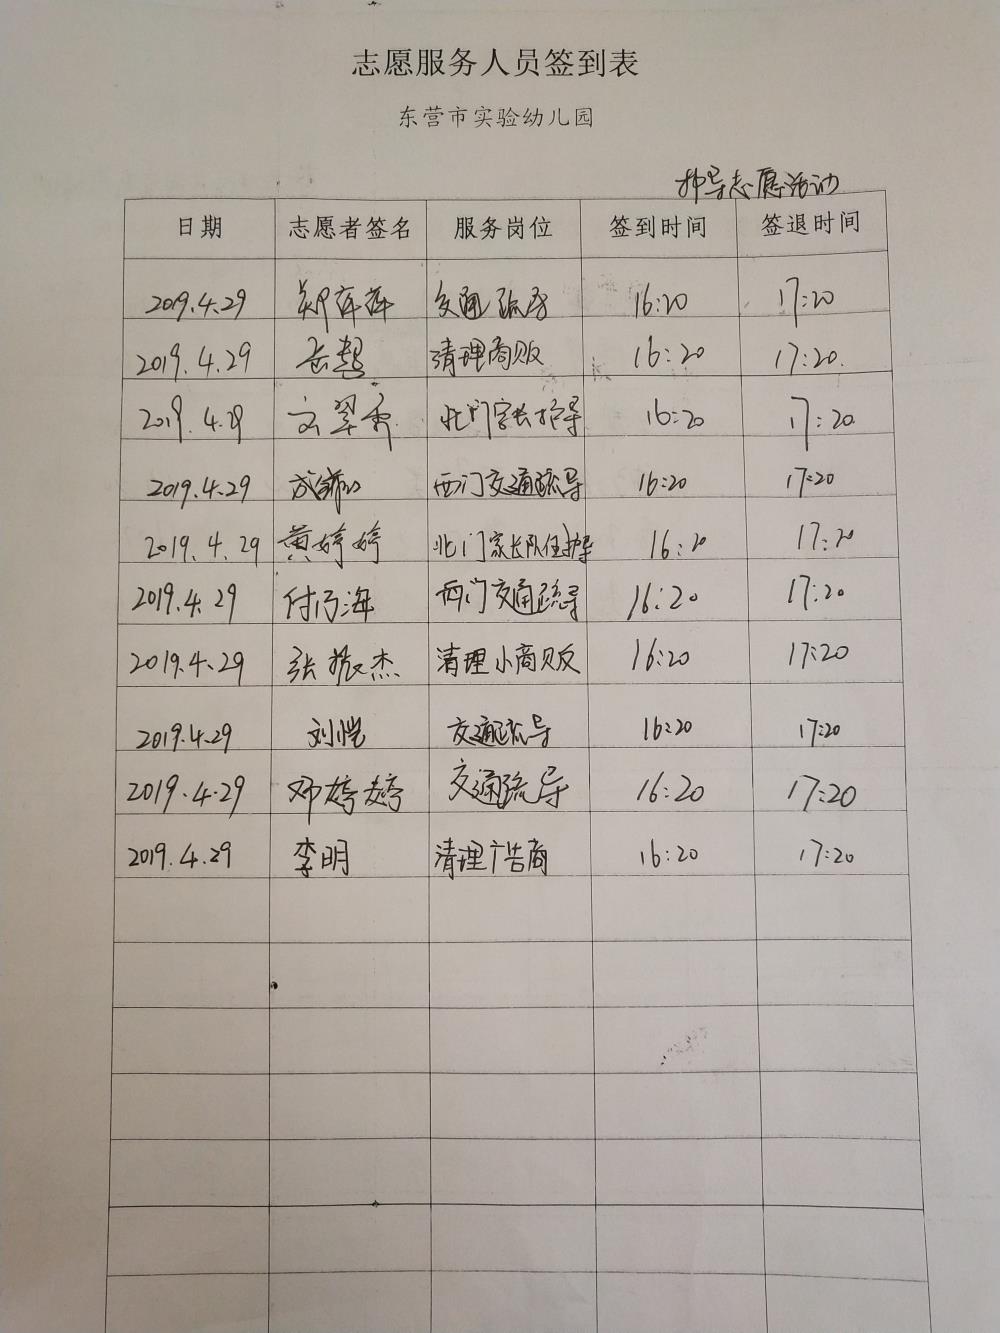 志愿服务人员签到表
东营市实验幼儿园
护导志愿活动
日期 志愿者签名 服务岗位 签到时间 签退时间
2019.4.29 郑萍萍 交通疏导 16:20 17:20
2019.4.29 岳慧 清理商贩 16:20 17:20.
2019.4.29 文翠香 北门家长护导 16:20 17:20
2019.4.29 西门交通疏导 16:20 17:20
2019.4.29 黄婷婷 北门家长队伍护导 16:20 17:20
2019.4.29 付乃海 西门交通疏导 16:20 17:20
2019.4.29 张振杰 清理小商贩 16:20 17:20
2019.4.29 刘恺 交通疏导 16:20 17:20
2019.4.29 邓婷婷 交通疏导 16:20 17:20
2019.4.29 李明 清理广告商 16:20 17:20